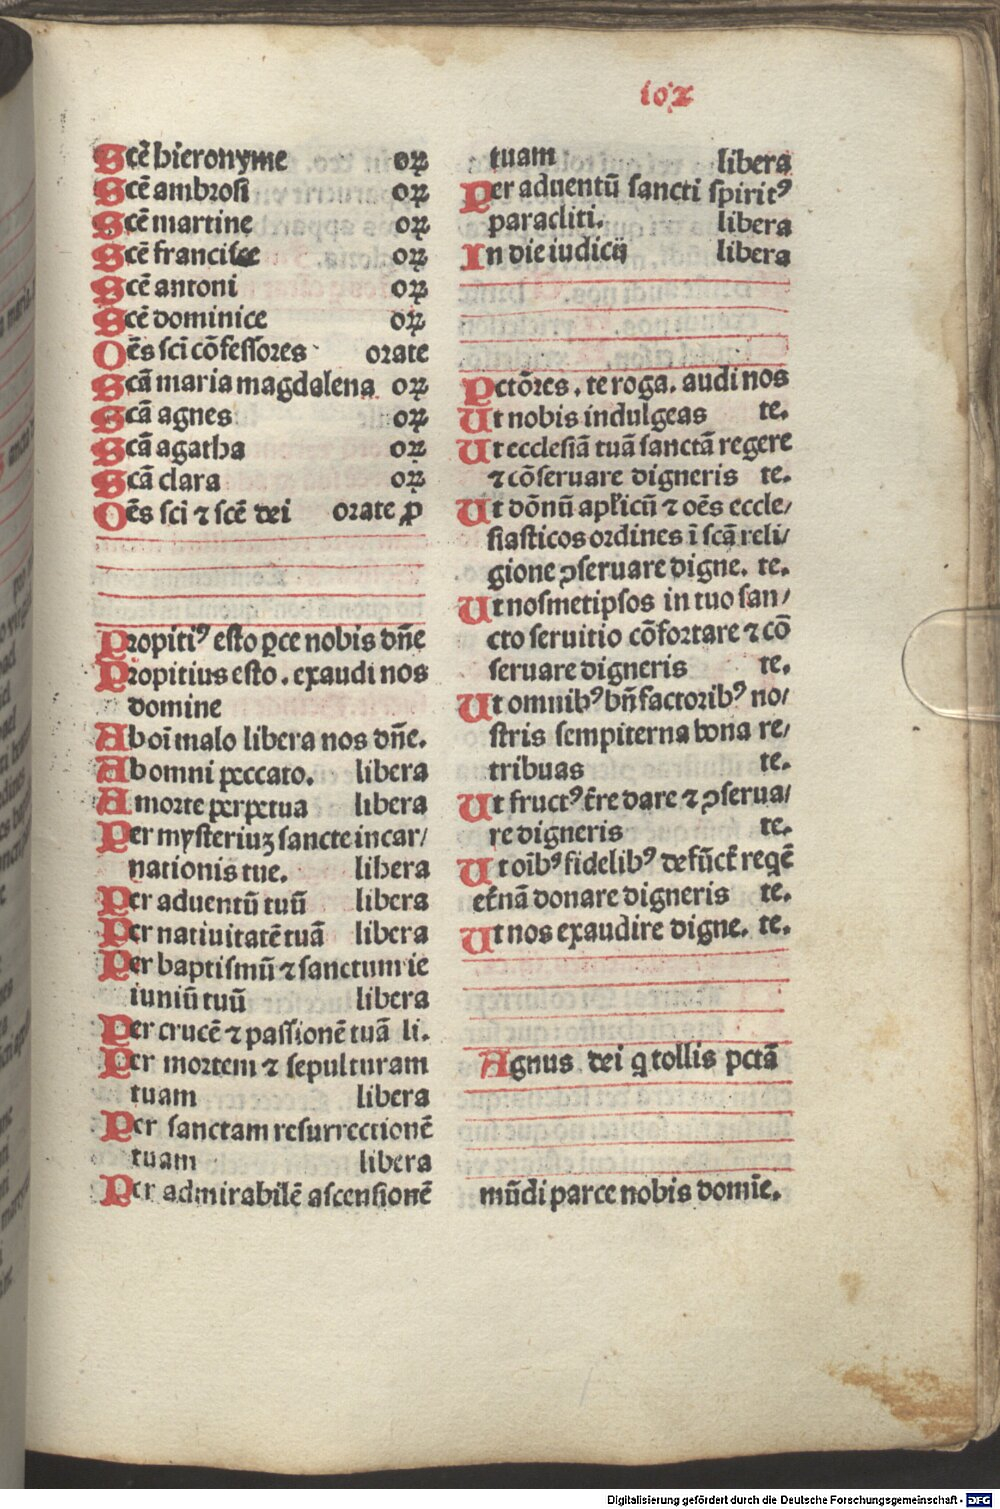 ioꝝ
Scē hieronyme oꝝ
Scē ambrosi oꝝ
Scē martine oꝝ
Scē francisce oꝝ
Scē antoni oꝝ
Scē dominice oꝝ
Oēs sci cōfessores orate
Scā maria magdalena oꝝ
Scā agnes oꝝ
Scā agatha oꝝ
Scā clara oꝝ
Oēs sci ⁊ scē dei orate ꝓ
Propitiꝰ esto ꝑce nobis dn̄e
Propitius esto . exaudi nos
domine
Ab oī malo libera nos dn̄e.
Ab omni peccato. libera
A morte perpetua libera
Per mysteriuꝫ sancte incar/
nationis tue. libera
Per aduentū tuū libera
Per natiuitatē tuā libera
Per baptismū ⁊ sanctum ie
iuniū tuū libera
Per crucē ⁊ passionē tuā li.
Per mortem ⁊ sepulturam
tuam libera
Per sanctam resurrectionē
tuam libera
Per admirabilē ascensionē
tuam libera
Per aduentū sancti spiritꝰ
paracliti. libera
In die iudicij libera
Pctōres . te roga . audi nos
Ut nobis indulgeas te.
Ut ecclesiā tuā sanctā regere
⁊ cōseruare digneris te.
Ut dōnū apl̄icū ⁊ oēs eccle/
siasticos ordines ī scā reli/
gione ꝯseruare digne. te.
Ut nosmetipsos in tuo san/
cto seruitio cōfortare ⁊ cō
seruare digneris te.
Ut omnibꝰ bn̄factoribꝰ no/
stris sempiterna bona re/
tribuas te.
Ut fructꝰ t̄re dare ⁊ ꝯserua/
re digneris te.
Ut oībꝰ fidelibꝰ defūct̄ reqē
et̄nā donare digneris te.
Ut nos exaudire digne. te.
Agnus dei q tollis pctā
mūdi parce nobis domīe.
Digitalisierung gefördert durch die Deutsche Forschungsgemeinschaft - DFG